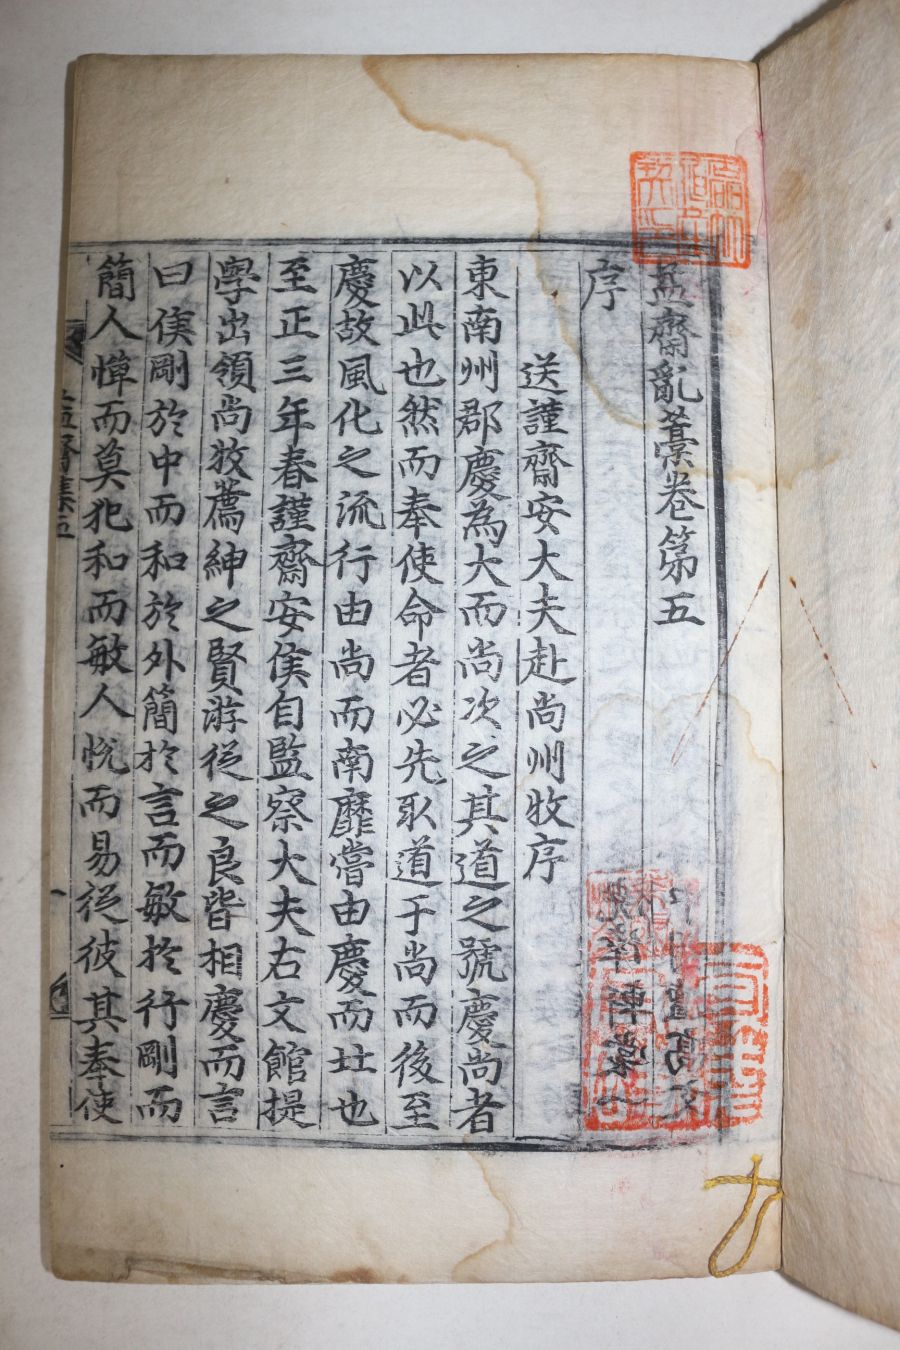 益齋亂藁卷第五
序
送謹齋安大夫赴尚州牧序
東南州郡慶為大而尚次之其道之號慶尚者
以此也然而奉使命者必先取道于尚而後至
慶故風化之流行由尚而南靡嘗由慶而北也
至正三年春謹齋安侯自監察大夫右文館提
學出領尚牧薦紳之賢游從之良皆相慶而言
曰侯剛於中而和於外簡於言而敏於行剛而
簡人憚而莫犯和而敏人悅而易從彼其奉使
益齋集五
一